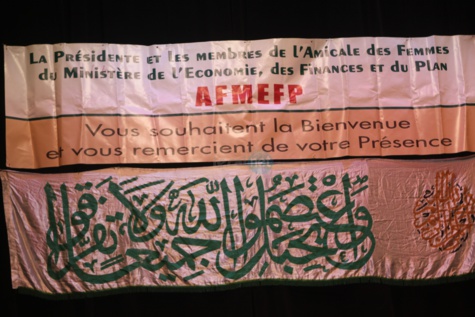 La Présidente et les membres de l'Amicale des Femmes
du Ministère de l'Economie, des Finances et du Plan
AFMEFP
Vous souhaitent la Bienvenue
et vous remercient de votre Présence
واعتصموا بحبل الله جميعا ولا تفرقوا